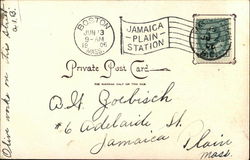 BOSTON
JUN 13
9-AM
JAMAICA
PLAIN
STATION
Private Post Card
THE ADDRESS ONLY ON THIS SIDE
#6 Adelaide St.
Jamaica Plain
Mass
Olive works on this